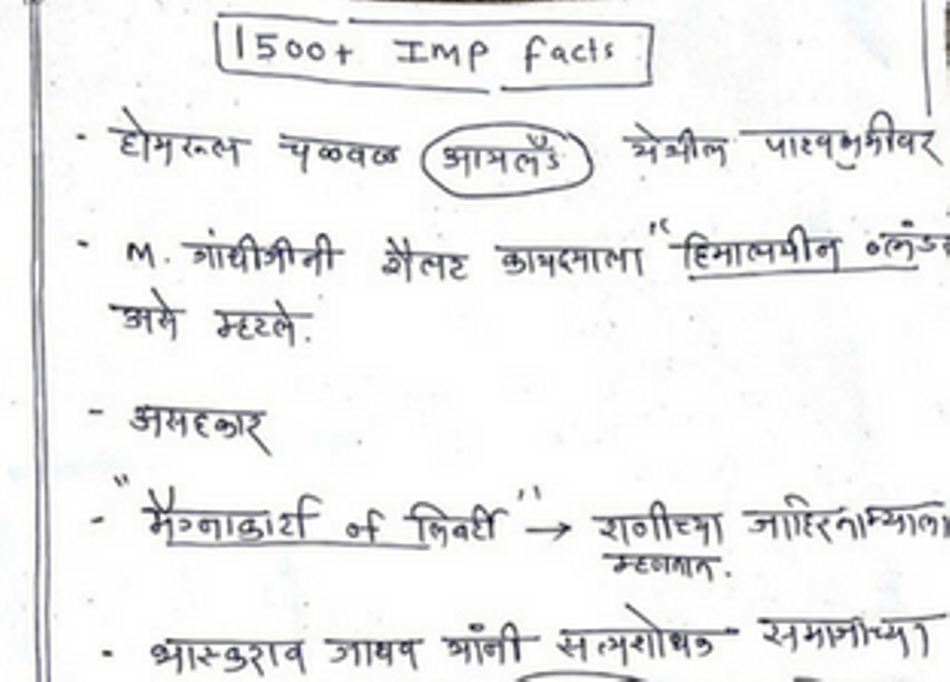 1500+ Imp facts
- होमरूल चळवळ आयर्लंड येथील पार्श्वभुमीवर
- M. गांधीजीनी रौलट कायद्याला "हिमालयीन
असे म्हटले.
- असहकार
- "मॅग्नाकार्टा of लिबर्टी" → राणीच्या जाहिरनाम्याला
म्हणतात.
- भास्करराव जाधव यांनी सत्यशोधक समाजाच्या